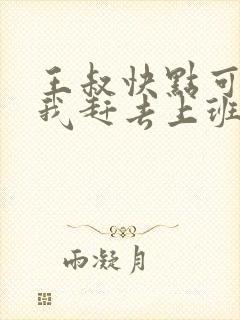 王叔快點可
我赶去上班
雨凝月